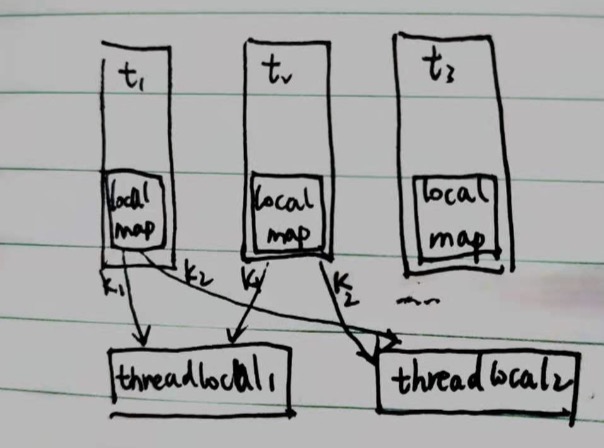 t₁ t₂ t₃
local local local
map map map
k₁ k₂ k₁ k₂
threadlocal₁ threadlocal₂